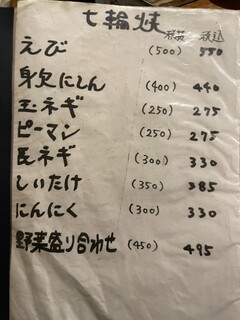 七輪焼
税抜 税込
えび (500) 550
身欠にしん (400) 440
玉ネギ (250) 275
ピーマン (250) 275
長ネギ (300) 330
しいたけ (350) 385
にんにく (300) 330
野菜盛り合わせ (450) 495